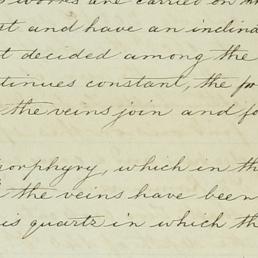 works are carried on
st and have an inclina
t decided among the
tinues constant, the
the veins join and fo
porphyry, which in th
the veins have been
is quartz in which th